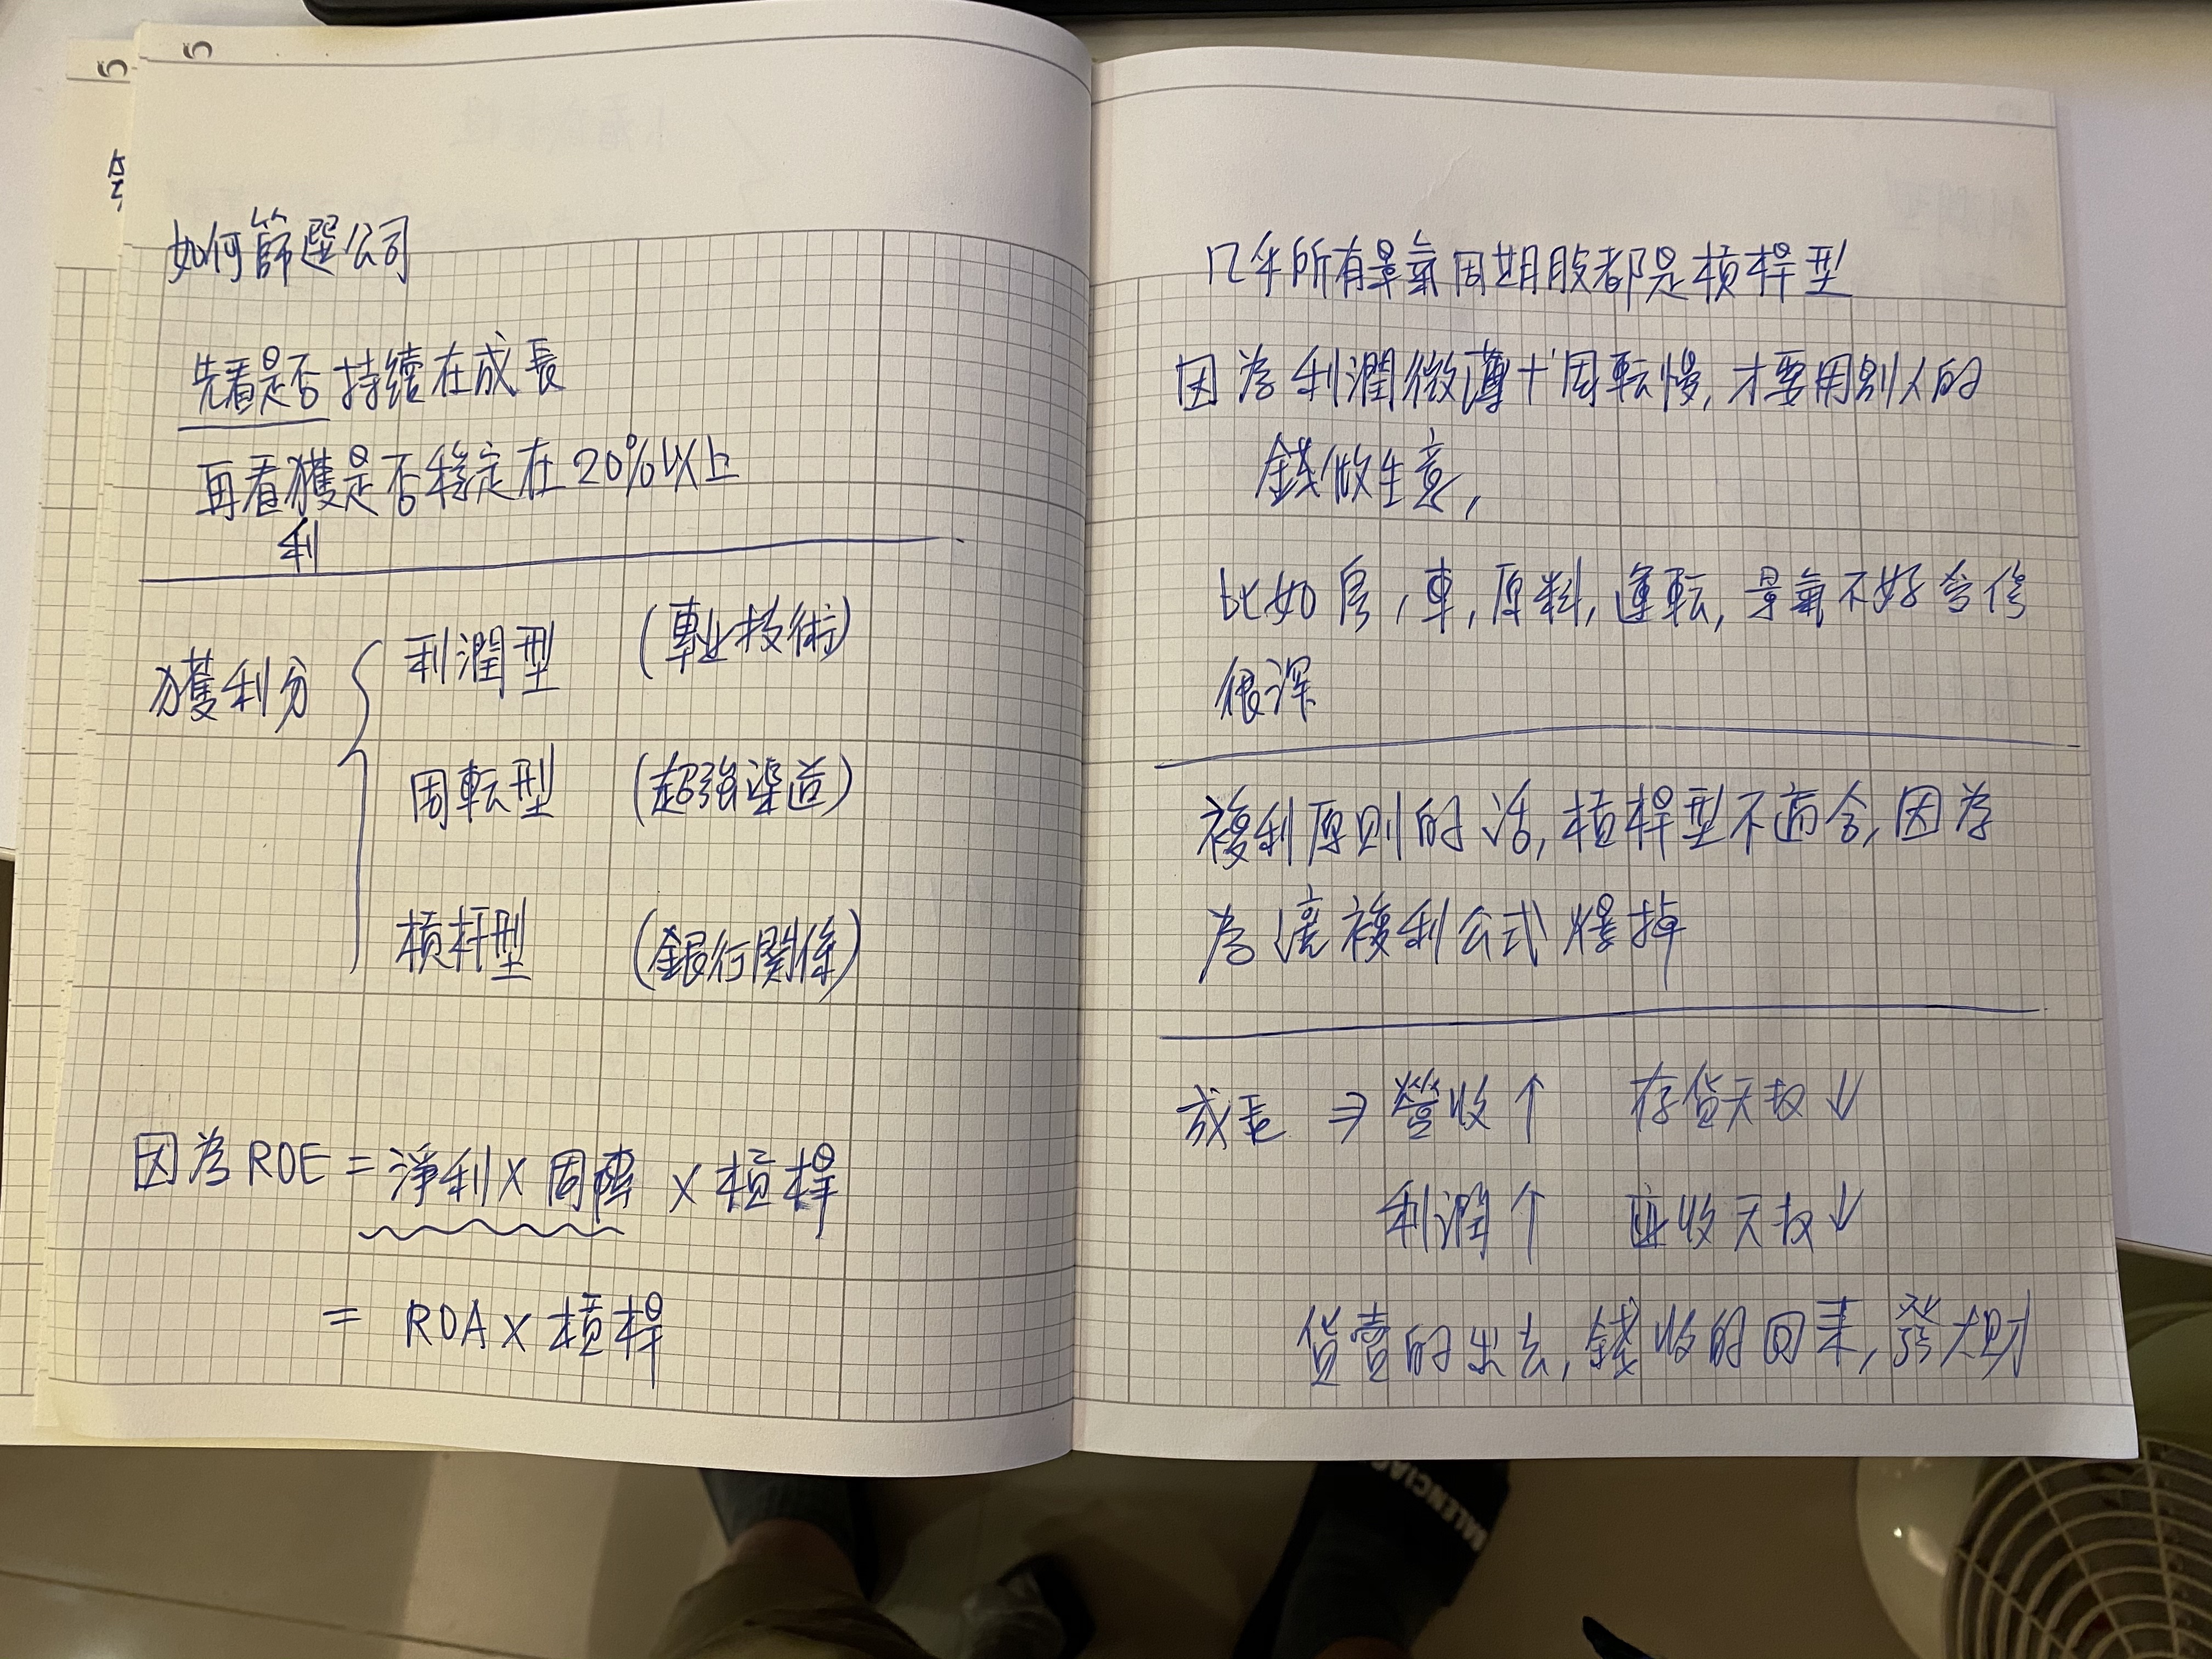 5
5
如何篩選公司
先看是否持續在成長
再看獲利是否穩定在20%以上
獲利分
利潤型 (專业技術)
周転型 (超強渠道)
槓杆型 (銀行関係)
因為ROE = 淨利 × 周轉 × 槓桿
= ROA × 槓桿
几乎所有景氣周期股都是槓桿型
因為利潤微薄+周転慢,才要用別人的
錢做生意,
比如房,車,原料,運転,景氣不好會修
很深
複利原則的话,槓桿型不適合,因為
為讓複利公式爆掉
成長 ⇒ 營收↑ 存貨天数↓
利潤↑ 应收天数↓
貨賣的出去,錢收的回来,發大財
BALENCIAG